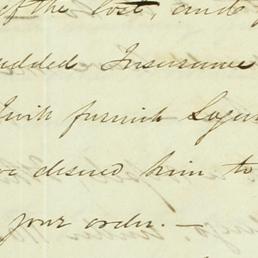 of the lost, and
added Insurance
I will furnish
desired him to
your order. —